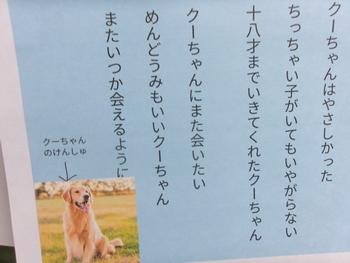 クーちゃんはやさしかった
ちっちゃい子がいてもいやがらない
十八才までいきてくれたクーちゃん
クーちゃんにまた会いたい
めんどうみもいいクーちゃん
またいつか会えるように
クーちゃん
のけんしゅ